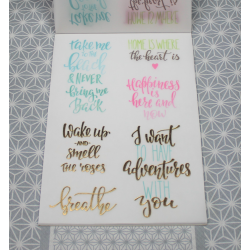 take me
to the
beach
& NEVER
bring me
Back
HOME IS WHERE
the heart is
Happiness
is
here and
now
Wake up
and
smell
THE ROSES
I want
TO HAVE
adventures
WITH
you
breathe